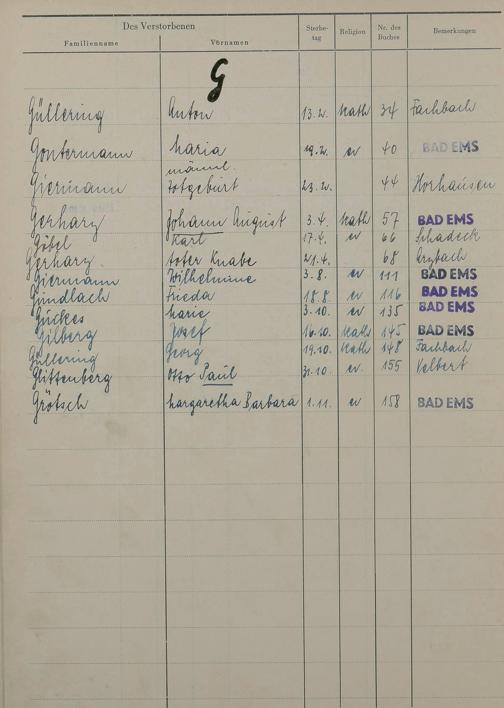 Des Verstorbenen
Familienname Vornamen Sterbe-tag Religion Nr. des Buches Bemerkungen
G
Güllering Anton 13.2. Kath 34 Fachbach
Gontermann Maria 19.2. ev 40 BAD EMS
männl.
Giermann Totgeburt 23.2. 44 Horhausen
Gerharz Johann August 3.4. Kath 57 BAD EMS
Göbel Karl 17.4. ev 66 Schadeck
Gerharz. toter Knabe 21.4. 68 Arzbach
Giermann Wilhelmine 3.8. ev 111 BAD EMS
Gundlach Frieda 18.8. ev 116 BAD EMS
Gückes Marie 3.10. ev 135 BAD EMS
Gilberg Josef 16.10. Kath 145 BAD EMS
Güllering Georg 19.10. Kath 148 Fachbach
Glittenberg Otto Paul 31.10. ev. 155 Velbert
Grötsch Margaretha Barbara 1.11. ev 158 BAD EMS